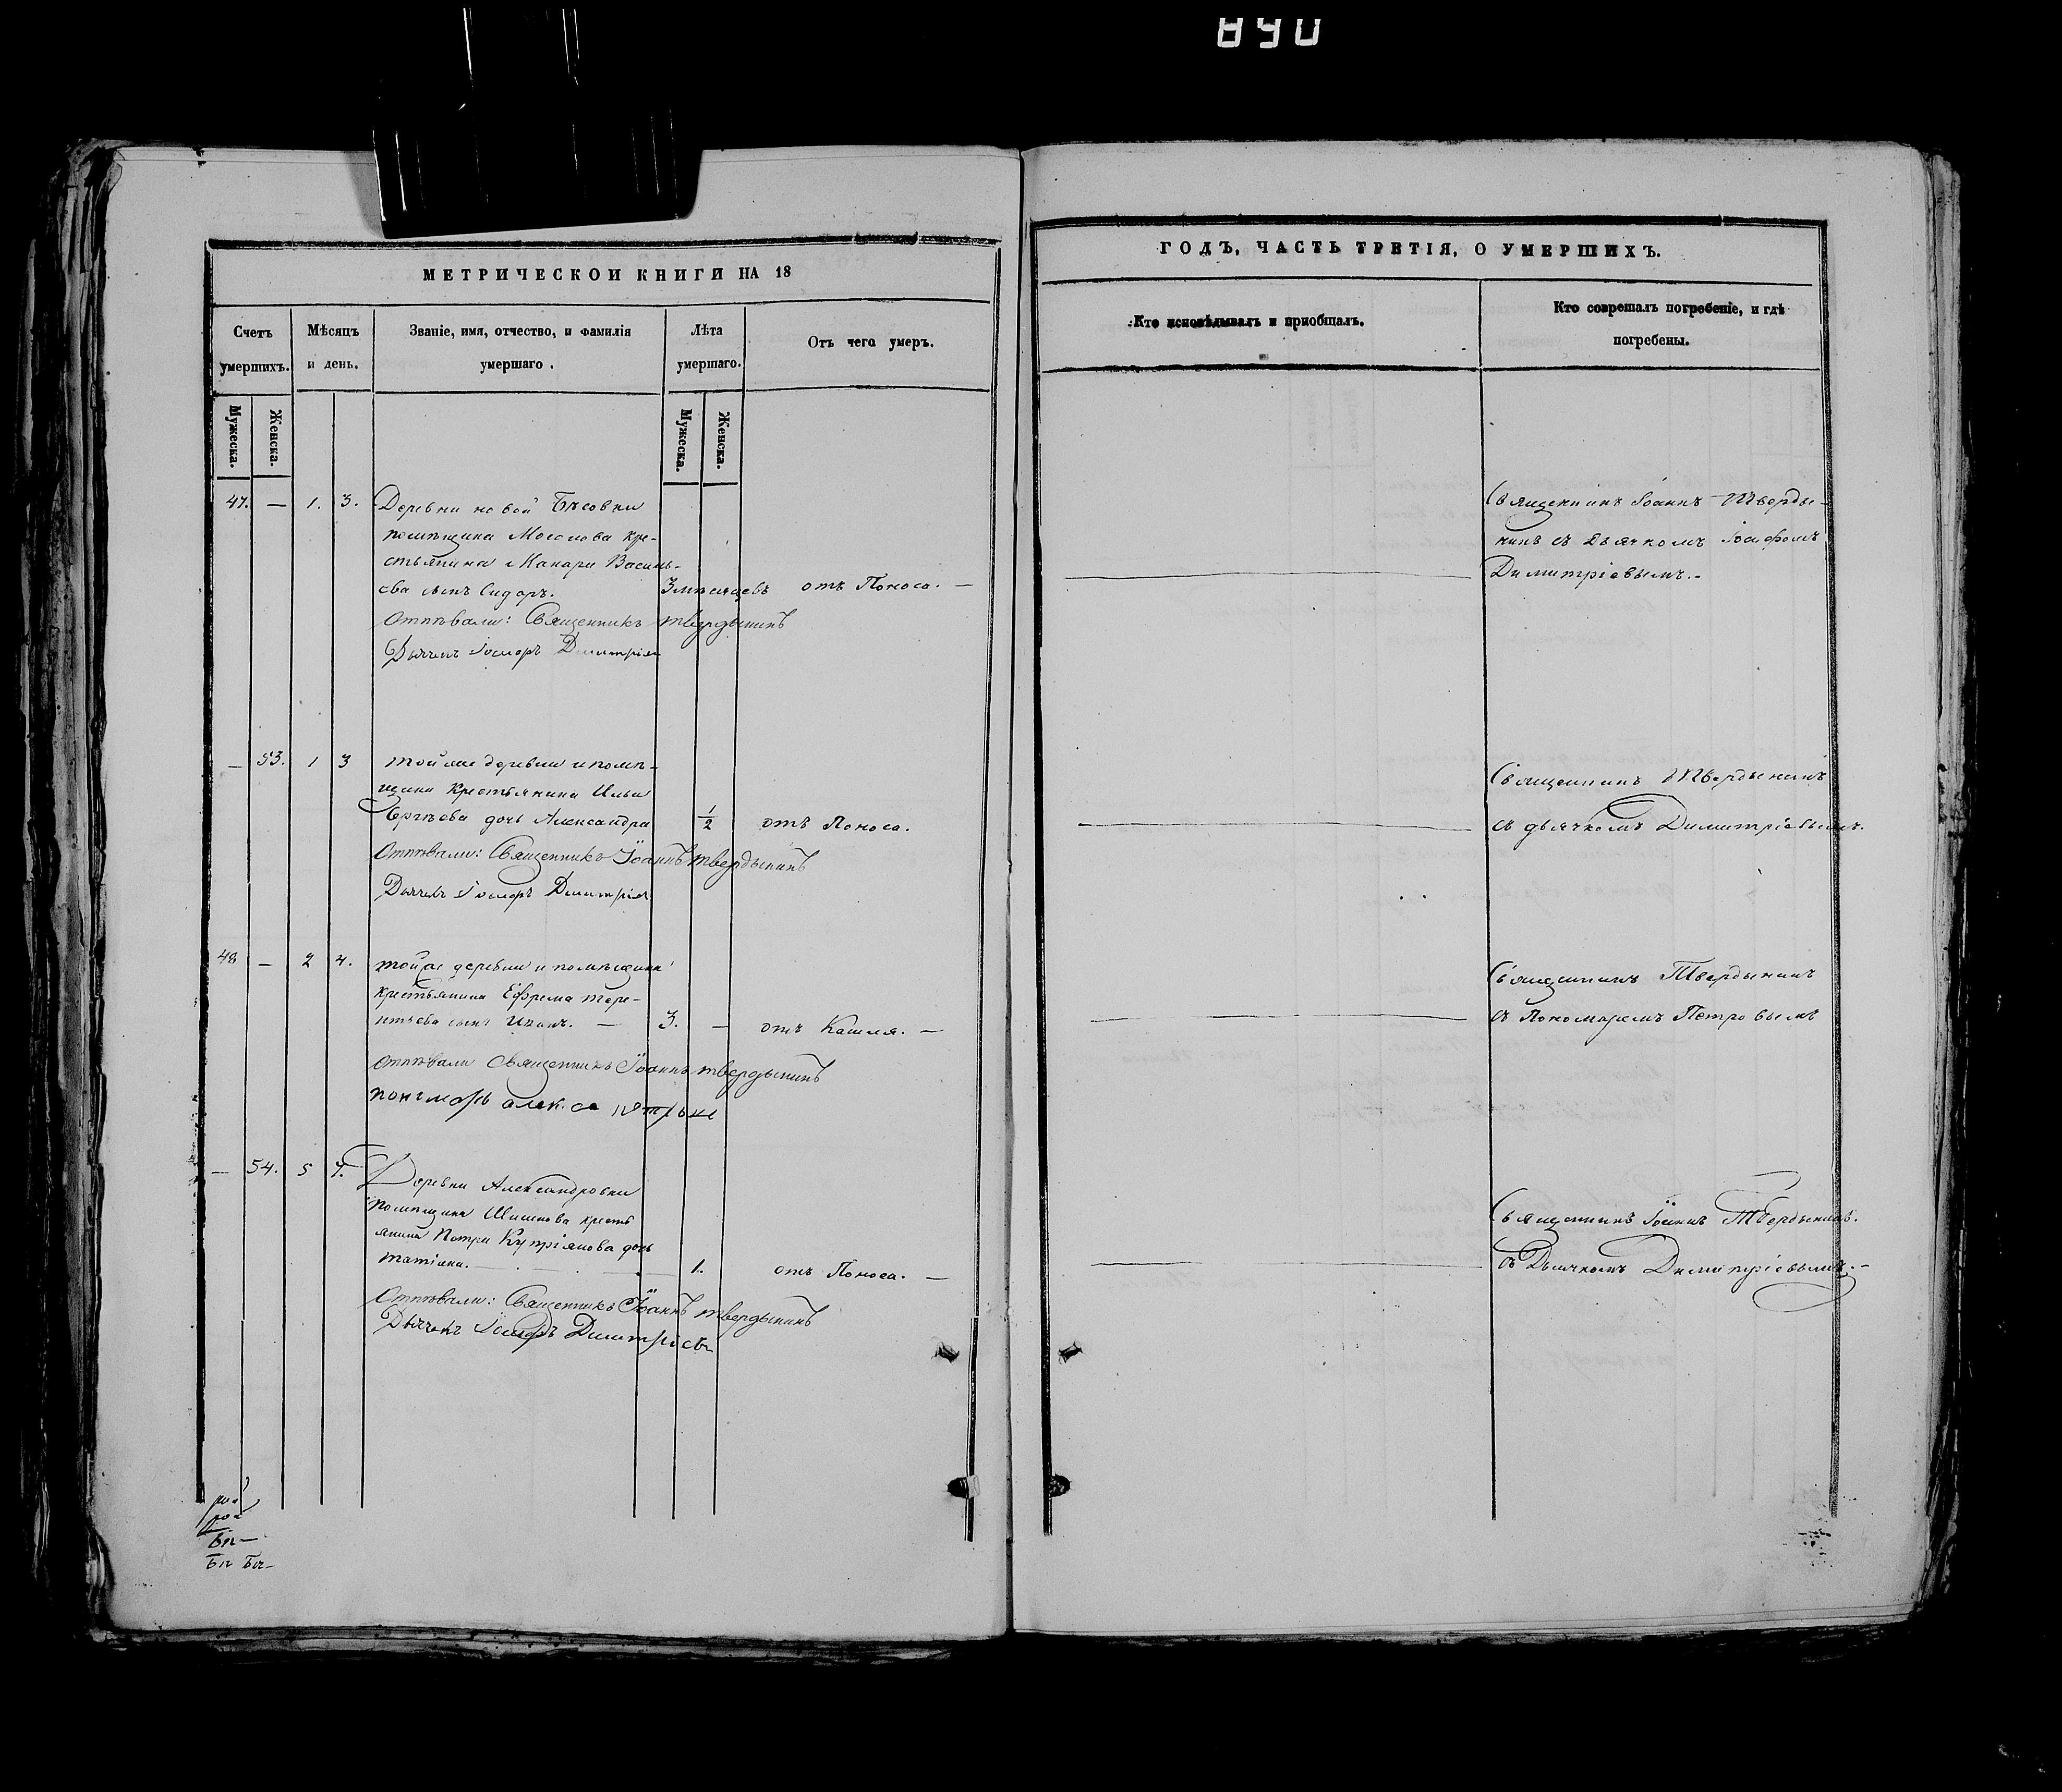 890
МЕТРИЧЕСКОИ КНИГИ НА 18
Счетъ умершихъ.
Мѣсяцъ и день.
Званіе, имя, отчество, и фамилія умершаго.
Лѣта умершаго.
Отъ чего умеръ.
Мужеска.
Женска.
Мужеска.
Женска.
47. — 1. 3. Деревни новой Бѣсовки
помѣщика Мосолова кре-
стьянина Макара Василь-
ева сынъ Сидоръ. 3 мѣсяцевъ отъ Поноса. —
Отпѣвали: Священникъ Твердынинъ
Дьячекъ Іосифъ Димитріев
— 53. 1 3 той же деревни и помѣ-
щика Крестьянина Ильи
Сергѣева дочь Александра 1/2 отъ Поноса.
Отпѣвали: Священникъ Іоаннъ Твердынинъ
Дьячекъ Іосифъ Димитріев
48 — 2 4. той же деревни и помѣщика
крестьянина Ефрема Тере-
нтьева сынъ Иванъ. — 3. — отъ Кашля. —
Отпѣвали Священникъ Іоаннъ Твердынинъ
— 54. 5 7. Деревни Александровки
помѣщика Шишкова кресть
янина Петра Купріянова дочь
Татіяна. 1. отъ Поноса. —
Отпѣвали: Священникъ Іоаннъ Твердынинъ
Дьячекъ Іосифъ Димитріевъ
ГОДЪ, ЧАСТЬ ТРЕТІЯ, О УМЕРШИХЪ.
Кто исповѣдывалъ и приобщалъ.
Кто соврешалъ погребеніе, и гдѣ
погребены.
Священникъ Іоаннъ Тверды-
нинъ съ Дьячкомъ Іосифомъ
Димитріевымъ. -
Священникъ Твердынинъ
съ дьячкомъ Димитріевымъ.
Священникъ Твердынинъ
съ Пономаремъ Петровымъ
Священникъ Іоаннъ Твердынинъ.
съ Дьячкомъ Димитріевымъ. -